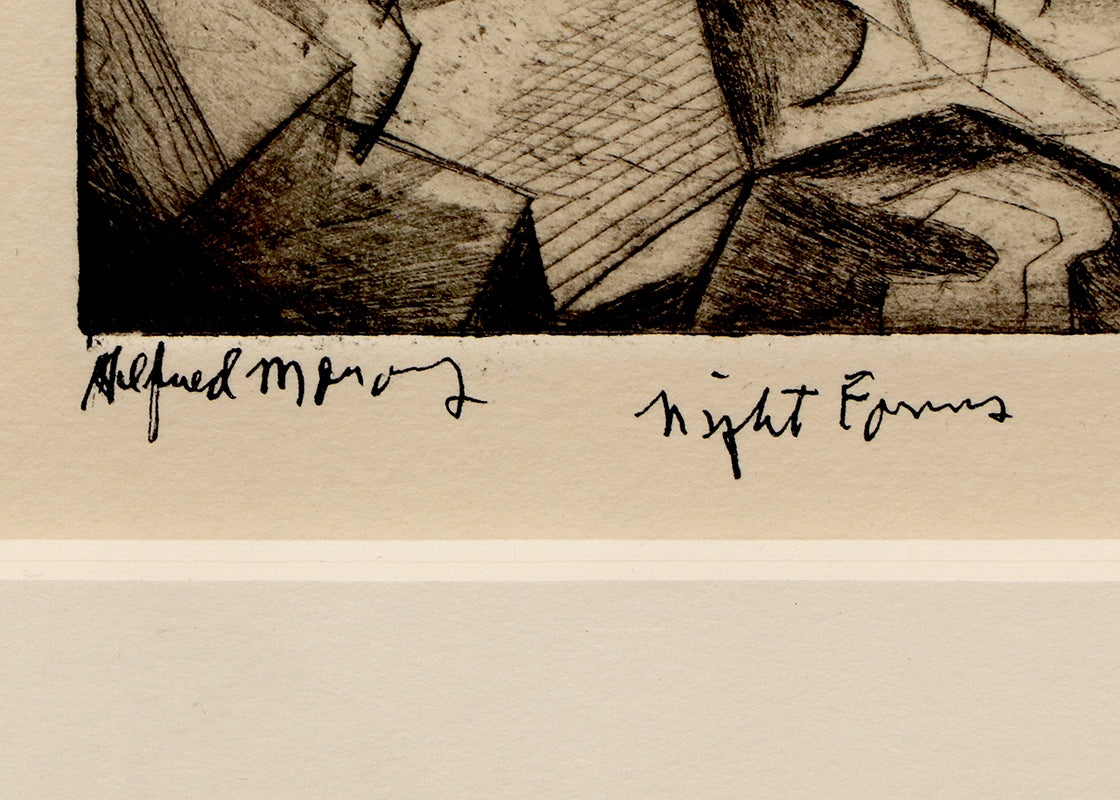 Alfred Maroy Night Forms